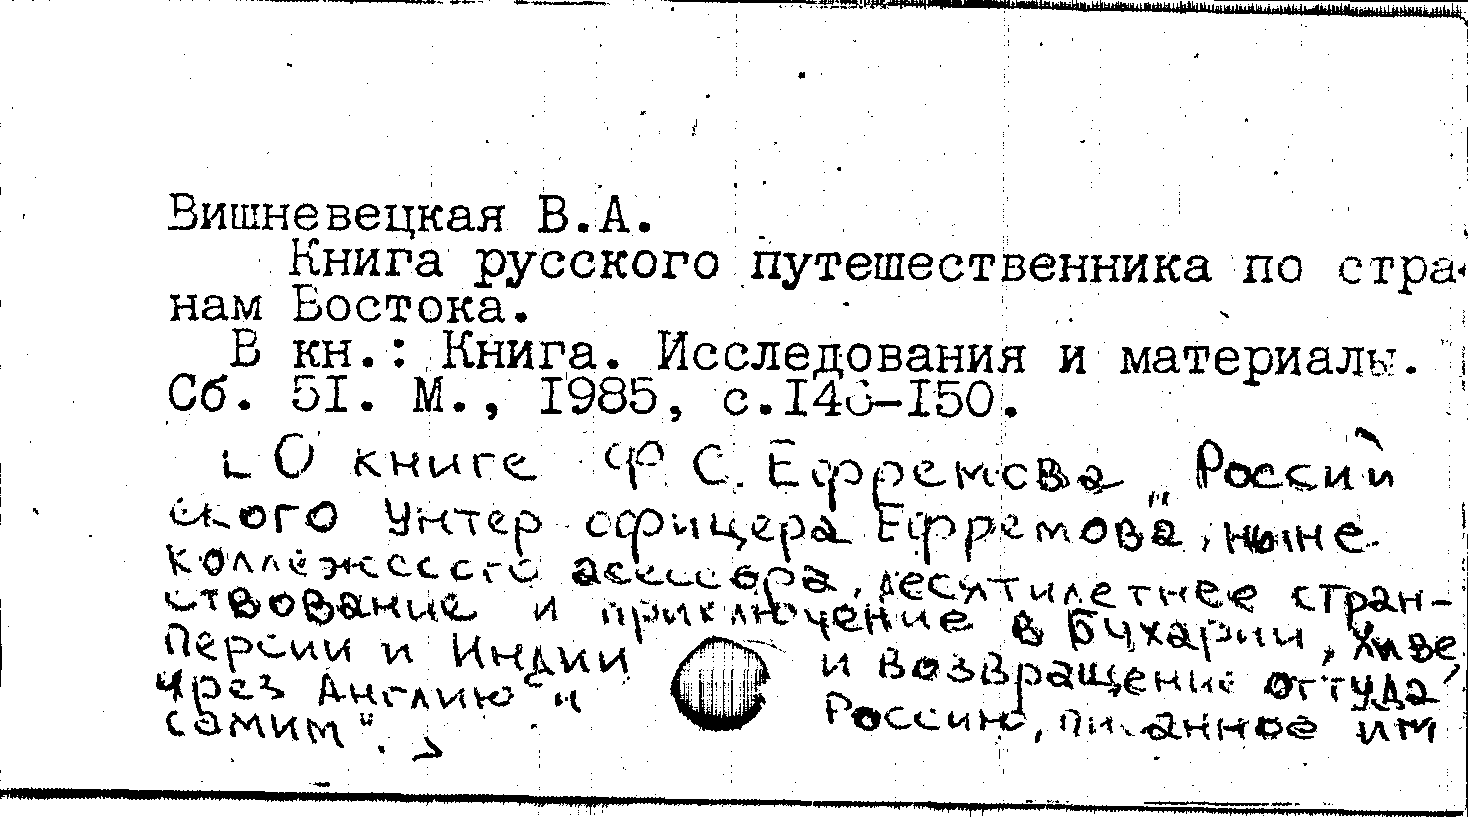 Вишневецкая В.А.
Книга русского путешественника по стра-
нам Востока.
В кн.: Книга. Исследования и материалы.
Сб. 51. М., 1985, с.146-150.
[О книге Ф.С. Ефремова „Россий
ского унтер офицера Ефремова, ныне
коллежского асессора, десятилетнее стран-
ствование и приключение в Бухарии, Хиве,
Персии и Индии и возвращение оттуда
чрез Англию в Россию, писанное им
самим".]